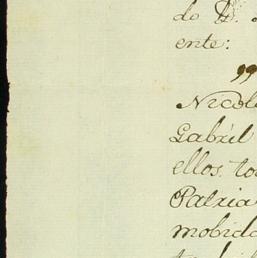 do D.
ente:
"
Nicol
Gabríl
ellos to
Patria
mobido